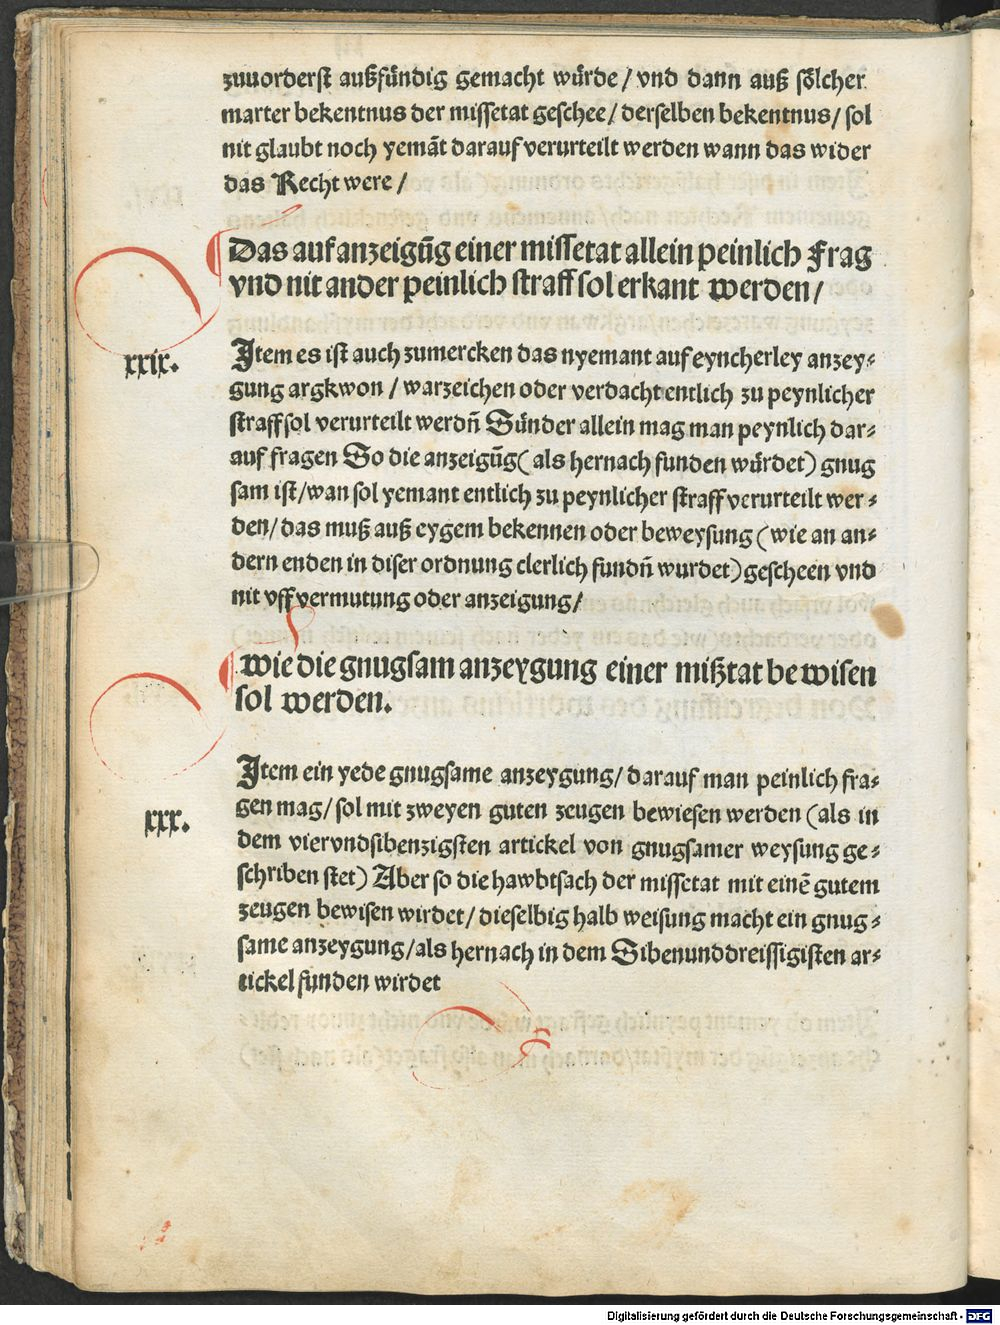 zuuorderst außfündig gemacht würde / vnd dann auß sölcher
marter bekentnus der missetat geschee / derselben bekentnus / sol
nit glaubt noch yemāt darauf verurteilt werden wann das wider
das Recht were /
Das auf anzeigūg einer missetat allein peinlich Frag
vnd nit ander peinlich straff sol erkant werden /
xxix.
Item es ist auch zumercken das nyemant auf eyncherley anzey⸗
gung argkwon / warzeichen oder verdacht entlich zu peynlicher
straff sol verurteilt werdn̄ Sünder allein mag man peynlich dar⸗
auf fragen So die anzeigūg ( als hernach funden würdet ) gnug
sam ist / wan sol yemant entlich zu peynlicher straff verurteilt wer⸗
den / das muß auß eygem bekennen oder beweysung ( wie an an⸗
dern enden in diser ordnung clerlich fundn̄ wurdet ) gescheen vnd
nit vff vermutung oder anzeigung /
wie die gnugsam anzeygung einer mißtat bewisen
sol werden.
Item ein yede gnugsame anzeygung / darauf man peinlich fra⸗
gen mag / sol mit zweyen guten zeugen bewiesen werden ( als in
xxx.
dem viervndsibenzigsten artickel von gnugsamer weysung ge⸗
schriben stet ) Aber so die hawbtsach der missetat mit einē gutem
zeugen bewisen wirdet / dieselbig halb weisung macht ein gnug⸗
same anzeygung / als hernach in dem Sibenunddreissigisten ar⸗
tickel funden wirdet
Digitalisierung gefördert durch die Deutsche Forschungsgemeinschaft - DFG